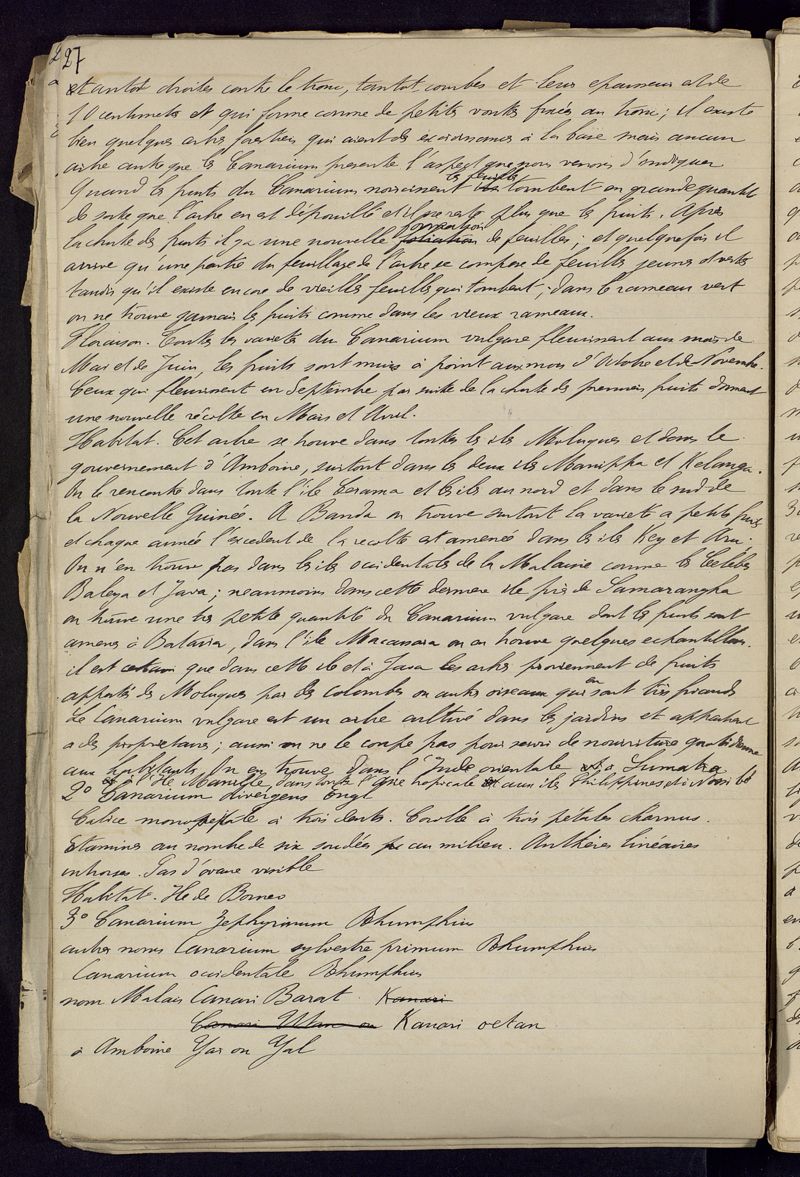 27
tantot droites contre le tronc, tantot courbes et leur epaisseur est de
10 centimetres et qui forme comme de petites voutes fixées au tronc; il existe
bien quelques arbres forestiers qui aient des excroissances à la base mais aucun
arbre autre que le Canarium presente l'aspect que nous venons d'indiquer
Quand les fruits du Canarium noircissent les feuilles tombent en grande quantité
de sorte que l'arbre en est dépouillé et il ne reste plus que les fruits. Après
la chute des fruits il y a une nouvelle foliation formation de feuilles; et quelquefois il
arrive qu'une partie du feuillage de l'arbre se compose de feuilles jeunes et vertes
tandis qu'il existe encore de vieilles feuilles qui tombent; dans le rameau vert
on ne trouve jamais les fruits comme dans les vieux rameaux.
Floraison. Toutes les varietés du Canarium vulgare fleurissent aux mois de
Mai et de Juin, les fruits sont murs à point aux mois d'Octobre et de Novembre.
Ceux qui fleurissent en Septembre par suite de la chute des premiers fruits donnent
une nouvelle récolte en Mars et Avril.
Habitat. Cet arbre se trouve dans toutes les iles Moluques et dans le
gouvernement d'Amboine, surtout dans les deux iles Manippa et Kelanga.
On le rencontre dans toute l'ile Cerama et les iles au nord et dans le sud de
la Nouvelle Guinée. A Banda on trouve surtout la varieté a petits fruits
et chaque année l'excedent de la recolte est amenée dans les iles Key et Aru.
On n'en trouve pas dans les iles occidentales de la Malaisie comme les Celebes
Baleya et Java; neanmoins dans cette derniere ile près de Samarangha
on trouve une très petite quantité du Canarium vulgare dont les fruits sont
amenés à Batavia, dans l'ile Macassara on en trouve quelques echantillons.
il est certain que dans cette ile et à Java les arbres proviennent de fruits
apportés des Moluques par des Colombes ou autres oiseaux qui en sont très friands
Le Canarium vulgare est un arbre cultivé dans les jardins et appartient
a des proprietaires; aussi on ne le coupe pas pour servir de nourriture quotidienne
aux habitants. On en trouve dans l'Inde orientale à Sumatra
à l'ile Manille, dans toute l'Asie tropicale aux iles Philippines et à Nossi bé
2° Canarium divergens Engl
Calice monosepale à trois dents. Corolle à trois pétales charnus.
Etamines au nombre de six soudées au milieu. Anthères linéaires
introrses. Pas d'ovaire visible
Habitat. Ile de Borneo
3° Canarium Zephyrinum Rhumphius
autres noms Canarium sylvestre primum Rhumphius
Canarium occidentale Rhumphius
nom Malais Canari Barat Kanari
Canari Utan ou Kanari oetan
à Amboine Yar ou Yal